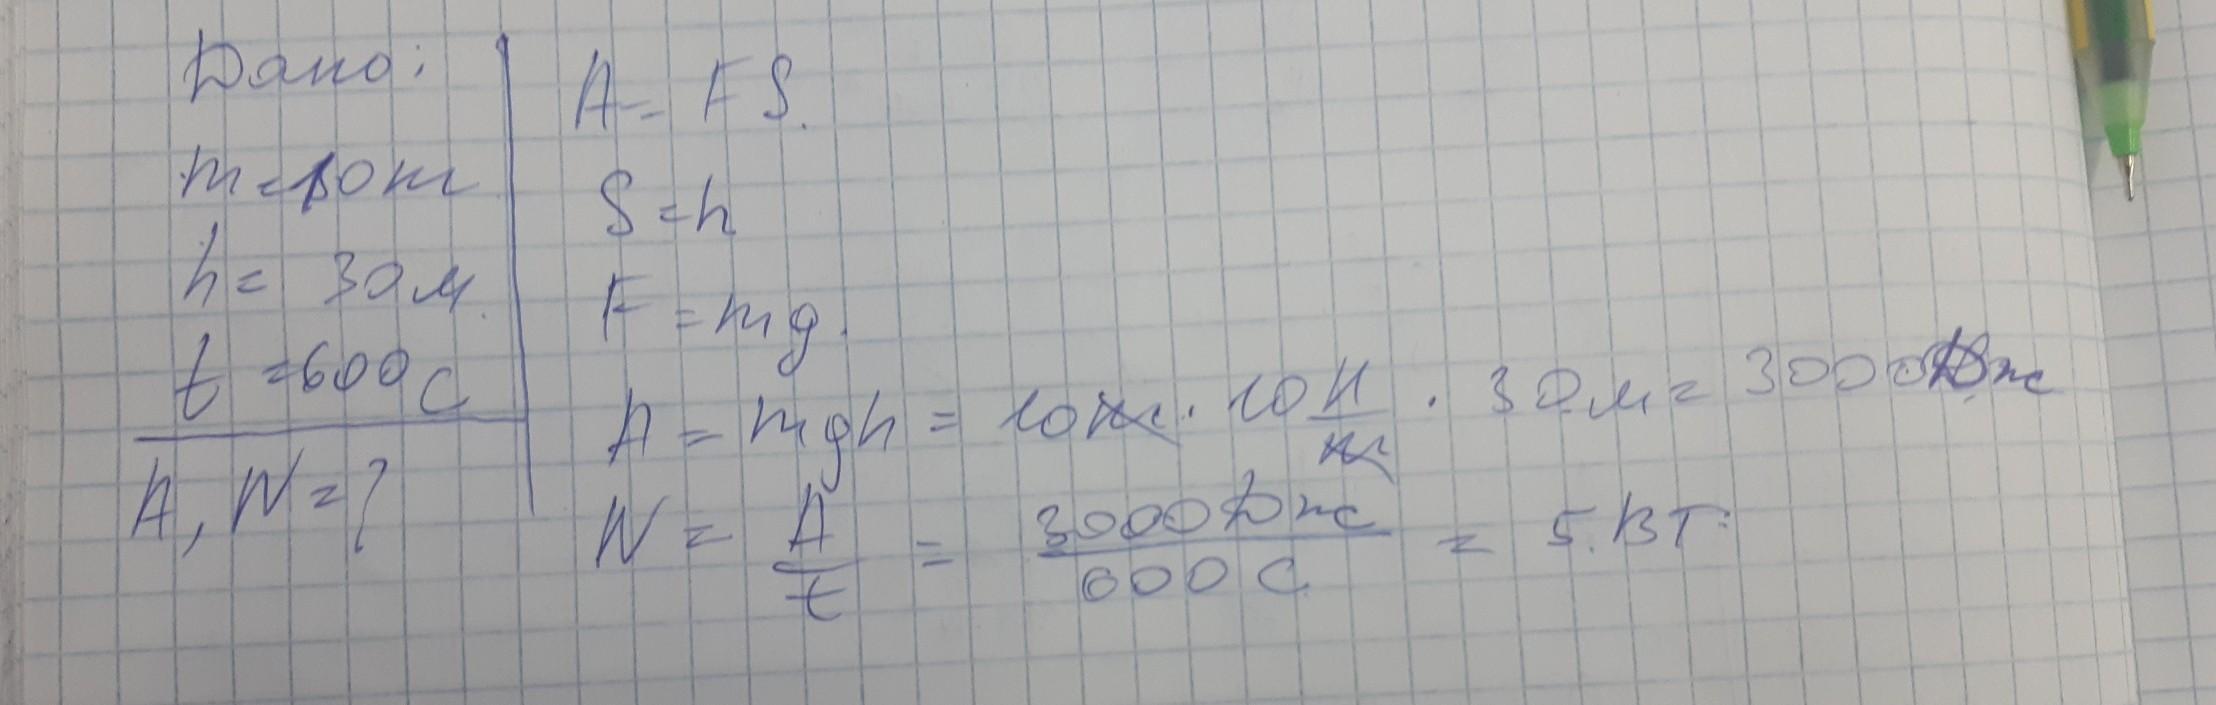 Дано:
m=10кг
h= 30м.
t=600с
A, N=?
A= FS.
S=h
F=mg.
A=mgh=10кг·10Н/кг·30м=3000Дж
N=A/t=3000Дж/600С=5.ВТ.